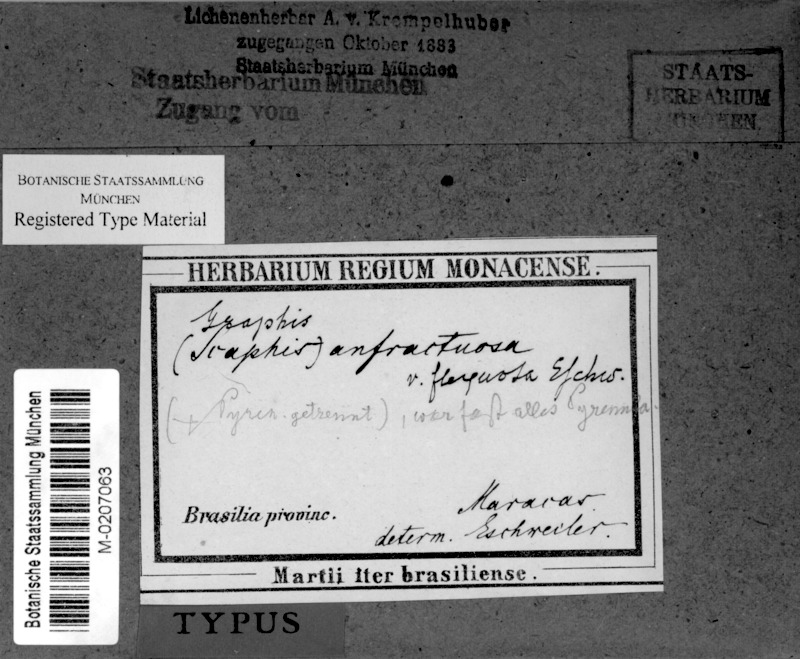 Lichenenherbar A. v. Krempelhuber
zugegangen Oktober 1883
Staatsherbarium München
Staatsherbarium München
Zugang vom
STAATS-
HERBARIUM
MÜNCHEN
BOTANISCHE STAATSSAMMLUNG
MÜNCHEN
Registered Type Material
HERBARIUM REGIUM MONACENSE.
Graphis
(Scaphis) anfractuosa
v. flexuosa Eschw.
( Pyren. getrennt), war fast alles Pyrenula.
Brasilia provinc. Maracas
determ. Eschweiler.
Martii Iter brasiliense.
TYPUS
Botanische Staatssammlung München
M-0207063